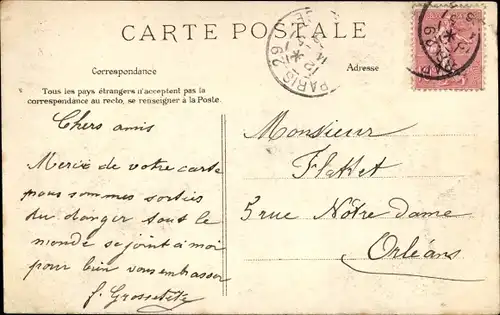 CARTE POSTALE
Correspondance
Adresse
Tous les pays étrangers n'acceptent pas la
correspondance au recto, se renseigner à la Poste.
PARIS 29
PARIS 29
Chers amis
Merci de votre carte
nous sommes sorties
du danger tout le
monde se joint à moi
pour bien vous embrasser
J. Grossetête
Monsieur
Flattet
5 rue Nôtre Dame
Orléans